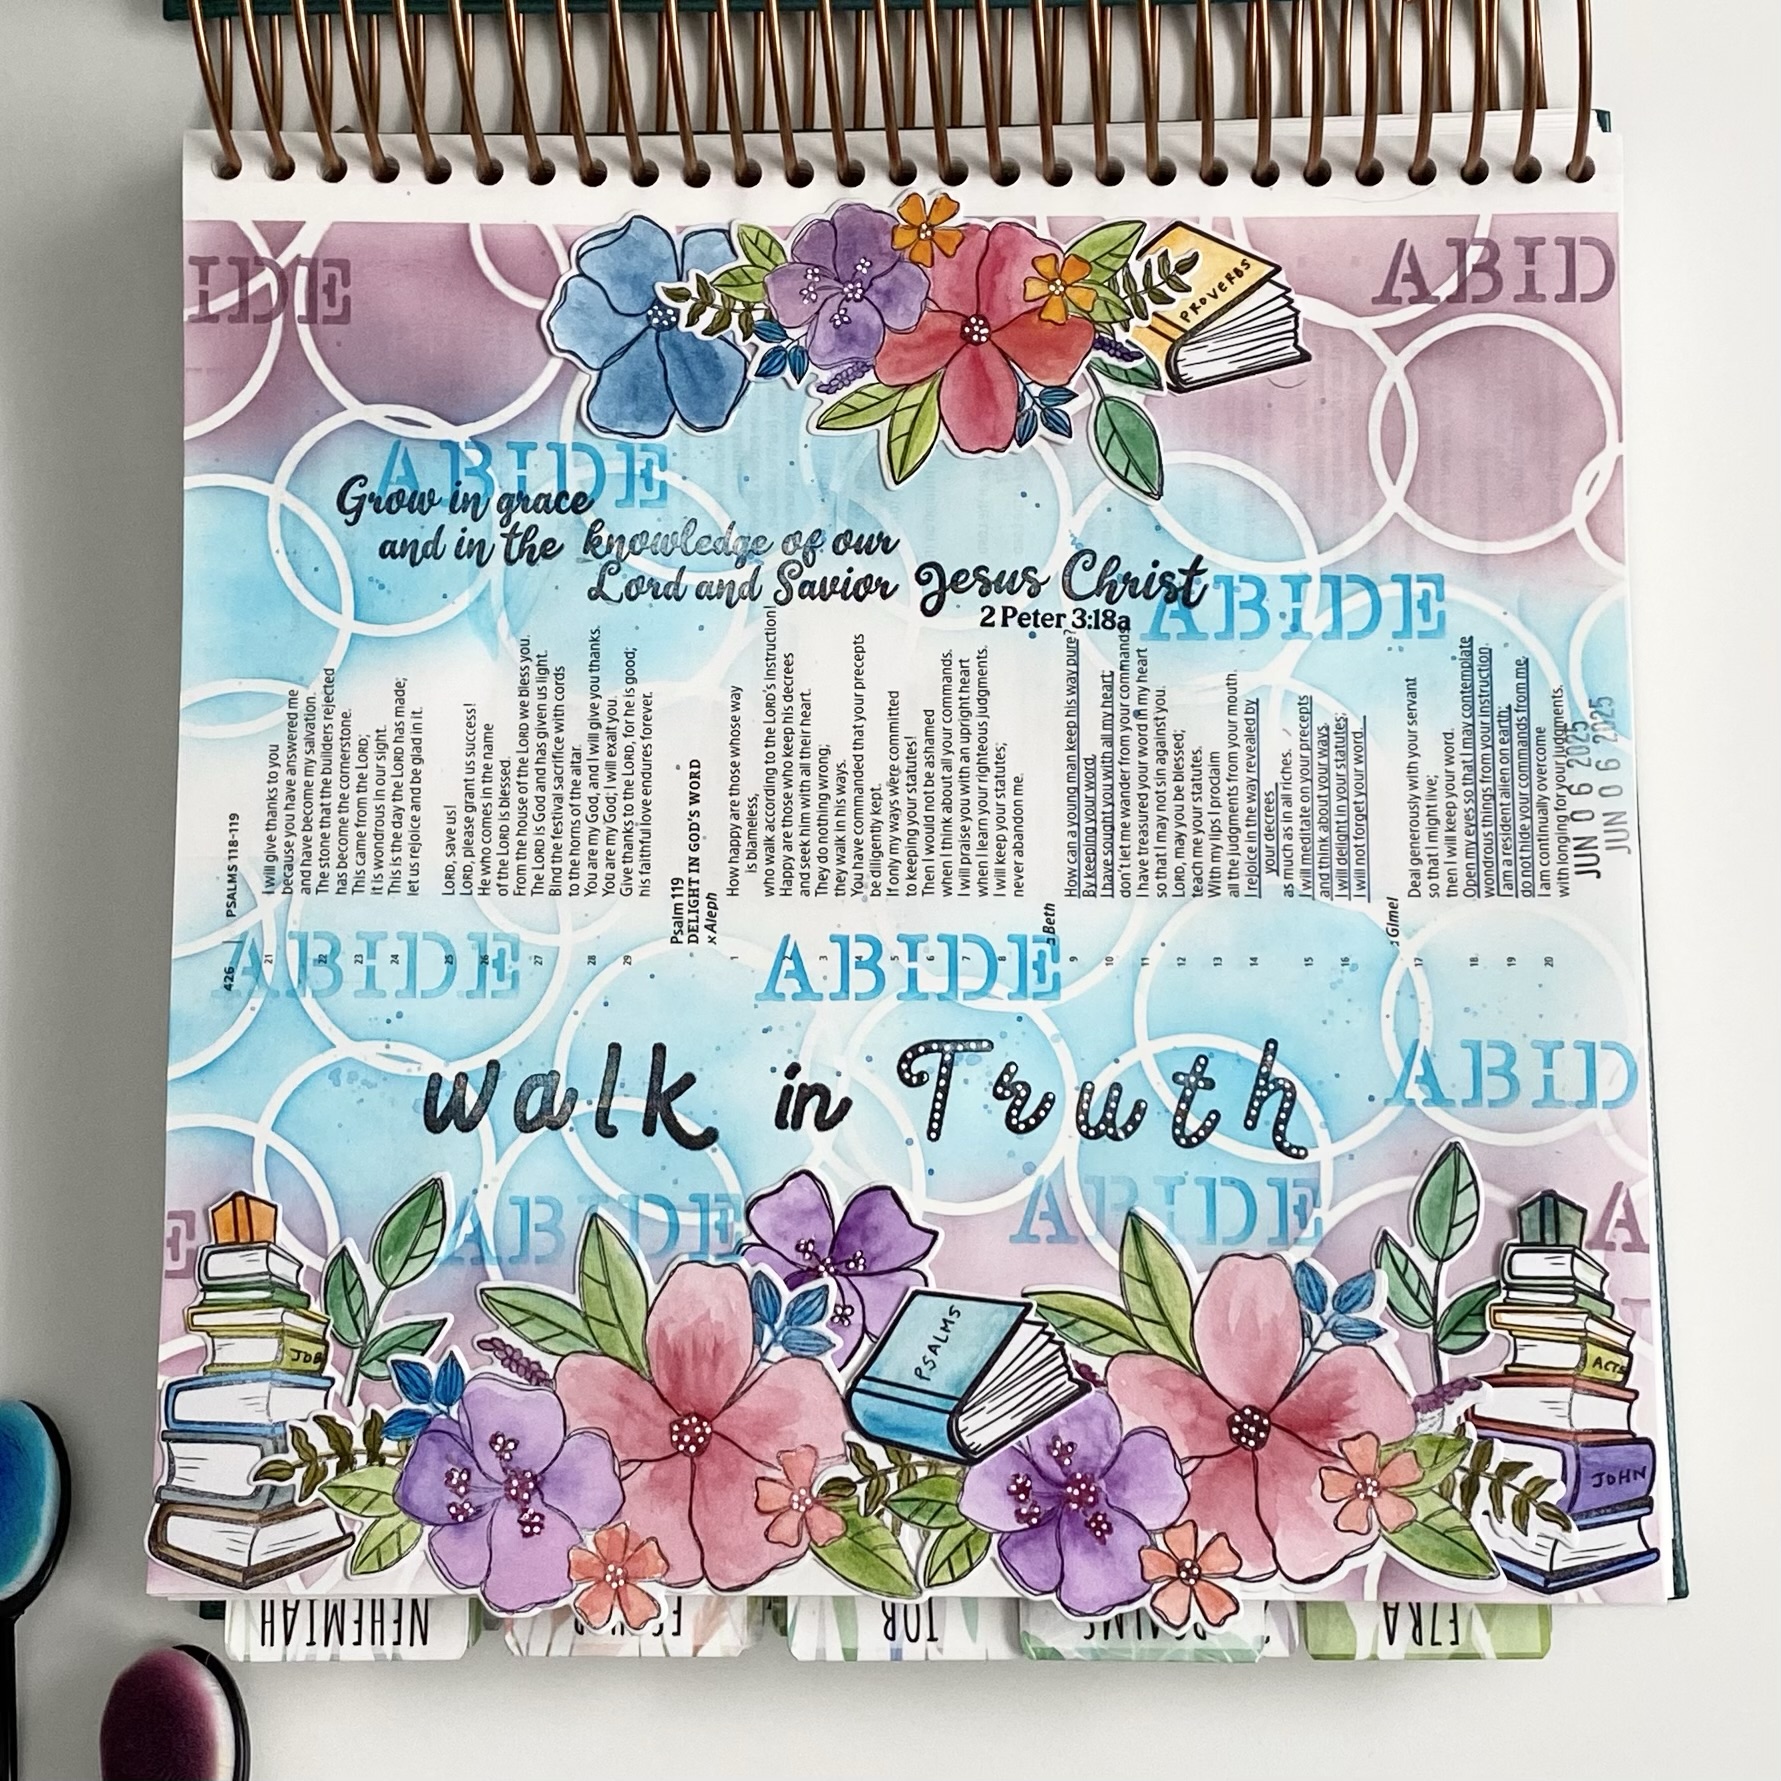 IDE
ABID
PROVERBS
ABIDE
Grow in grace
and in the knowledge of our
Lord and Savior Jesus Christ
2 Peter 3:18a
ABIDE
426 PSALMS 118-119
21 I will give thanks to you
because you have answered me
and have become my salvation.
22 The stone that the builders rejected
has become the cornerstone.
23 This came from the LORD;
it is wondrous in our sight.
24 This is the day the LORD has made;
let us rejoice and be glad in it.
25 LORD, save us!
LORD, please grant us success!
26 He who comes in the name
of the LORD is blessed.
From the house of the LORD we bless you.
27 The LORD is God and has given us light.
Bind the festival sacrifice with cords
to the horns of the altar.
28 You are my God, and I will give you thanks.
You are my God; I will exalt you.
29 Give thanks to the LORD, for he is good;
his faithful love endures forever.
Psalm 119
DELIGHT IN GOD'S WORD
א Aleph
1 How happy are those whose way
is blameless,
who walk according to the LORD's instruction!
2 Happy are those who keep his decrees
and seek him with all their heart.
3 They do nothing wrong;
they walk in his ways.
4 You have commanded that your precepts
be diligently kept.
5 If only my ways were committed
to keeping your statutes!
6 Then I would not be ashamed
when I think about all your commands.
7 I will praise you with an upright heart
when I learn your righteous judgments.
8 I will keep your statutes;
never abandon me.
ב Beth
9 How can a young man keep his way pure?
By keeping your word.
10 I have sought you with all my heart;
don't let me wander from your commands.
11 I have treasured your word in my heart
so that I may not sin against you.
12 LORD, may you be blessed;
teach me your statutes.
13 With my lips I proclaim
all the judgments from your mouth.
14 I rejoice in the way revealed by
your decrees
as much as in all riches.
15 I will meditate on your precepts
and think about your ways.
16 I will delight in your statutes;
I will not forget your word.
ג Gimel
17 Deal generously with your servant
so that I might live;
then I will keep your word.
18 Open my eyes so that I may contemplate
wondrous things from your instruction.
19 I am a resident alien on earth;
do not hide your commands from me.
20 I am continually overcome
with longing for your judgments.
JUN 0 6 2025
JUN 0 6 2025
ABIDE
ABIDE
ABID
walk in Truth
E
ABIDE
ABIDE
A
JOB
PSALMS
ACTS
JOHN
NEHEMIAH
JOB
PSALMS
EZRA